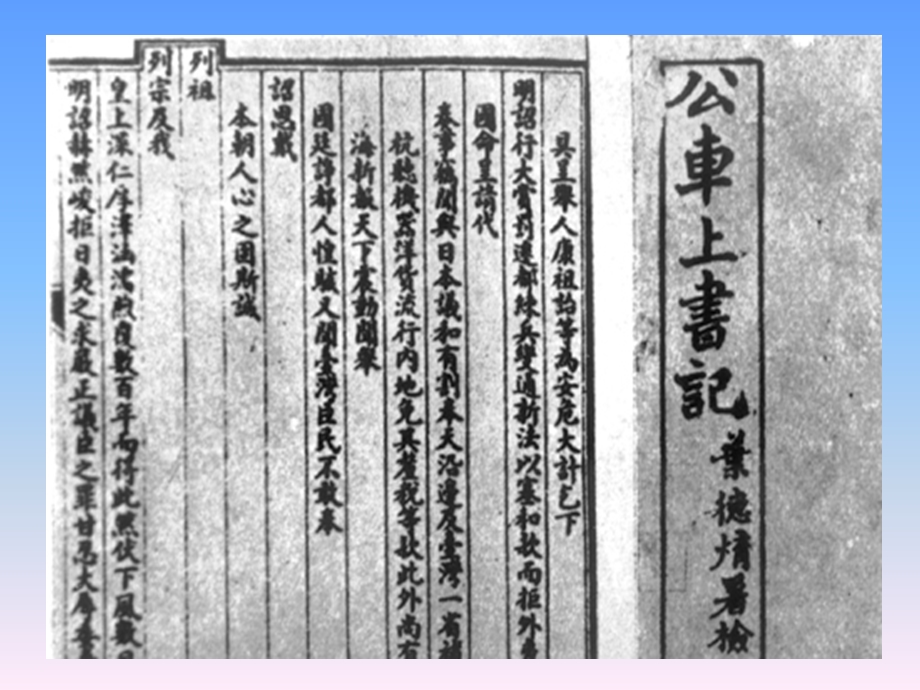 公車上書記
葉德署檢
具呈舉人康祖詒等為安危大計乞下
明詔行大賞罰遷都練兵變通新法以塞和款而拒外夷
國命呈請代
奏事竊聞與日本議和有割奉天沿邊及臺灣一省補
杭聽機器洋貨流行內地免其釐稅等款此外尚有
海新報天下震動聞舉
國廷諍都人惶駭又聞臺灣臣民不敢奉
詔思戴
本朝人心之固斯誠
列祖
列宗及我
皇上深仁厚澤涵濡煦覆數百年而得此然伏下風數日
明詔赫然峻拒日夷之求嚴正議臣之罪甘忍大辱委